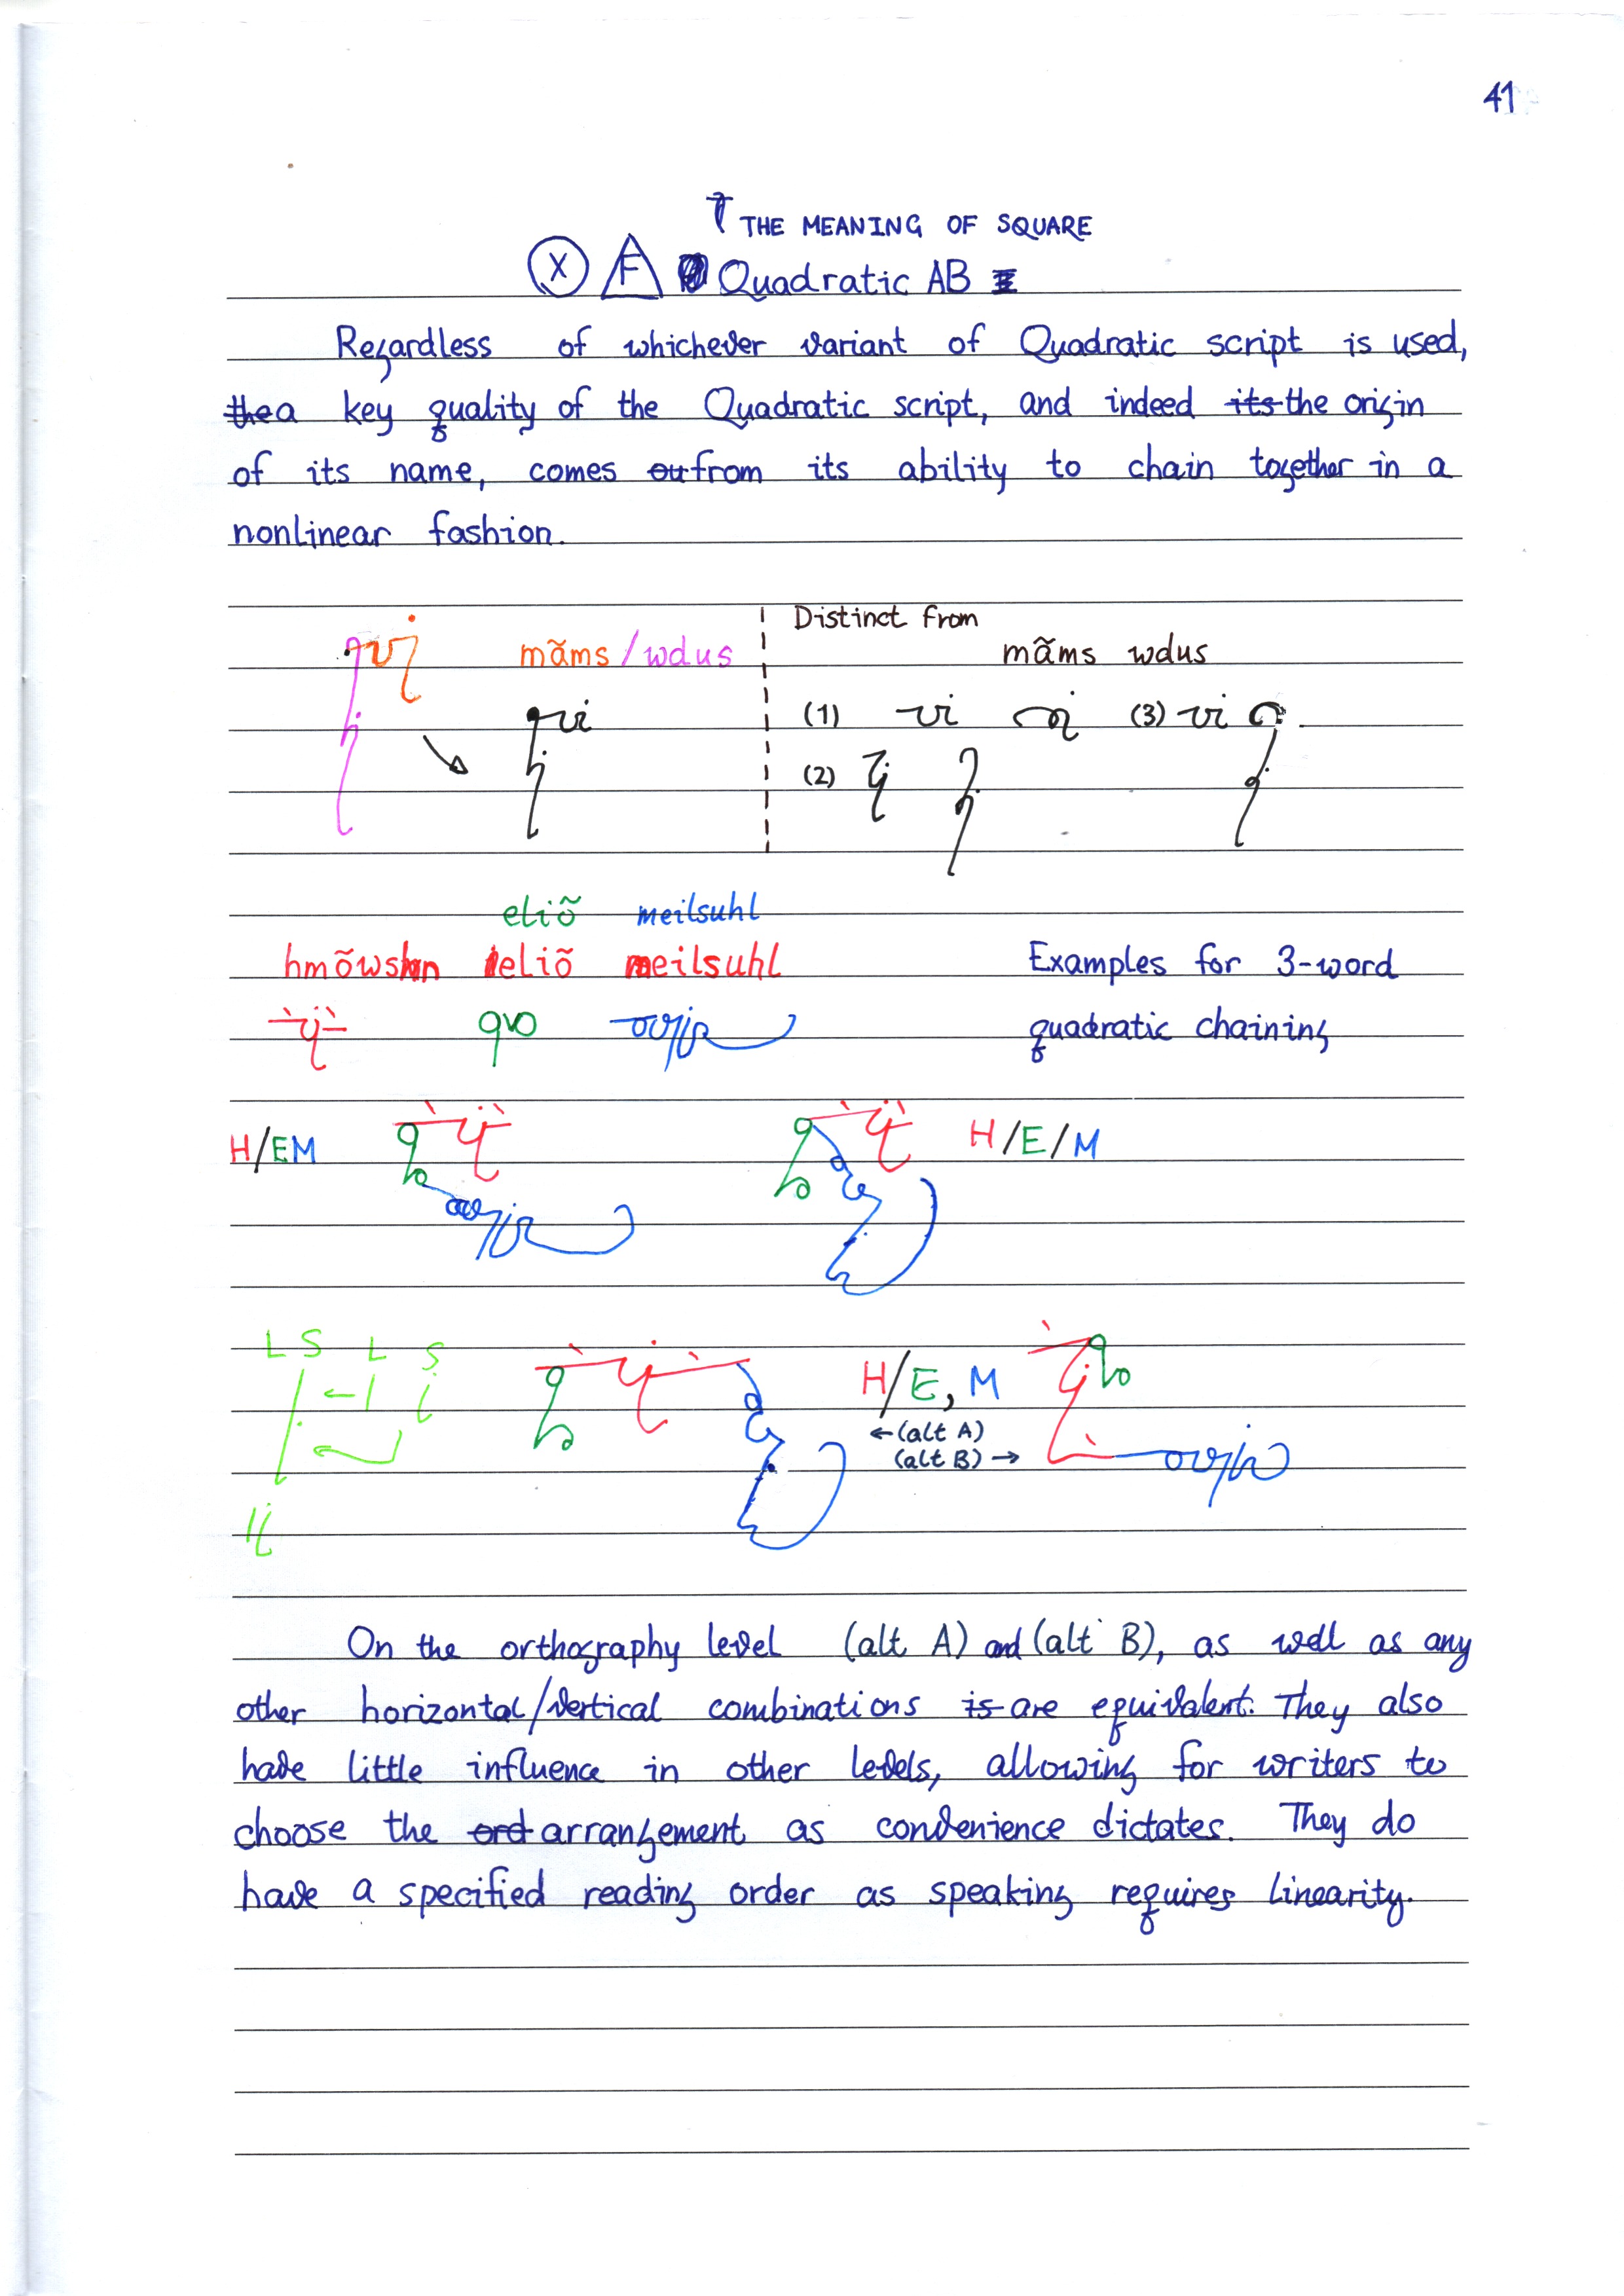 41
THE MEANING OF SQUARE
X F Quadratic AB
Regardless of whichever variant of Quadratic script is used,
the a key quality of the Quadratic script, and indeed its the origin
of its name, comes ou from its ability to chain together in a
nonlinear fashion.
Distinct from
mãms / wdus
mãms wdus
(1) (3)
(2)
eliõ meilsuhl
eliõ meilsuhl
Examples for 3-word
quadratic chaining
H/EM
H/E/M
L S L S
H/E, M
←(alt A)
(alt B)→
On the orthography level (alt A) and (alt B), as well as any
other horizontal/vertical combinations is are equivalent. They also
have little influence in other levels, allowing for writers to
choose the ord arrangement as convenience dictates. They do
have a specified reading order as speaking requires linearity.